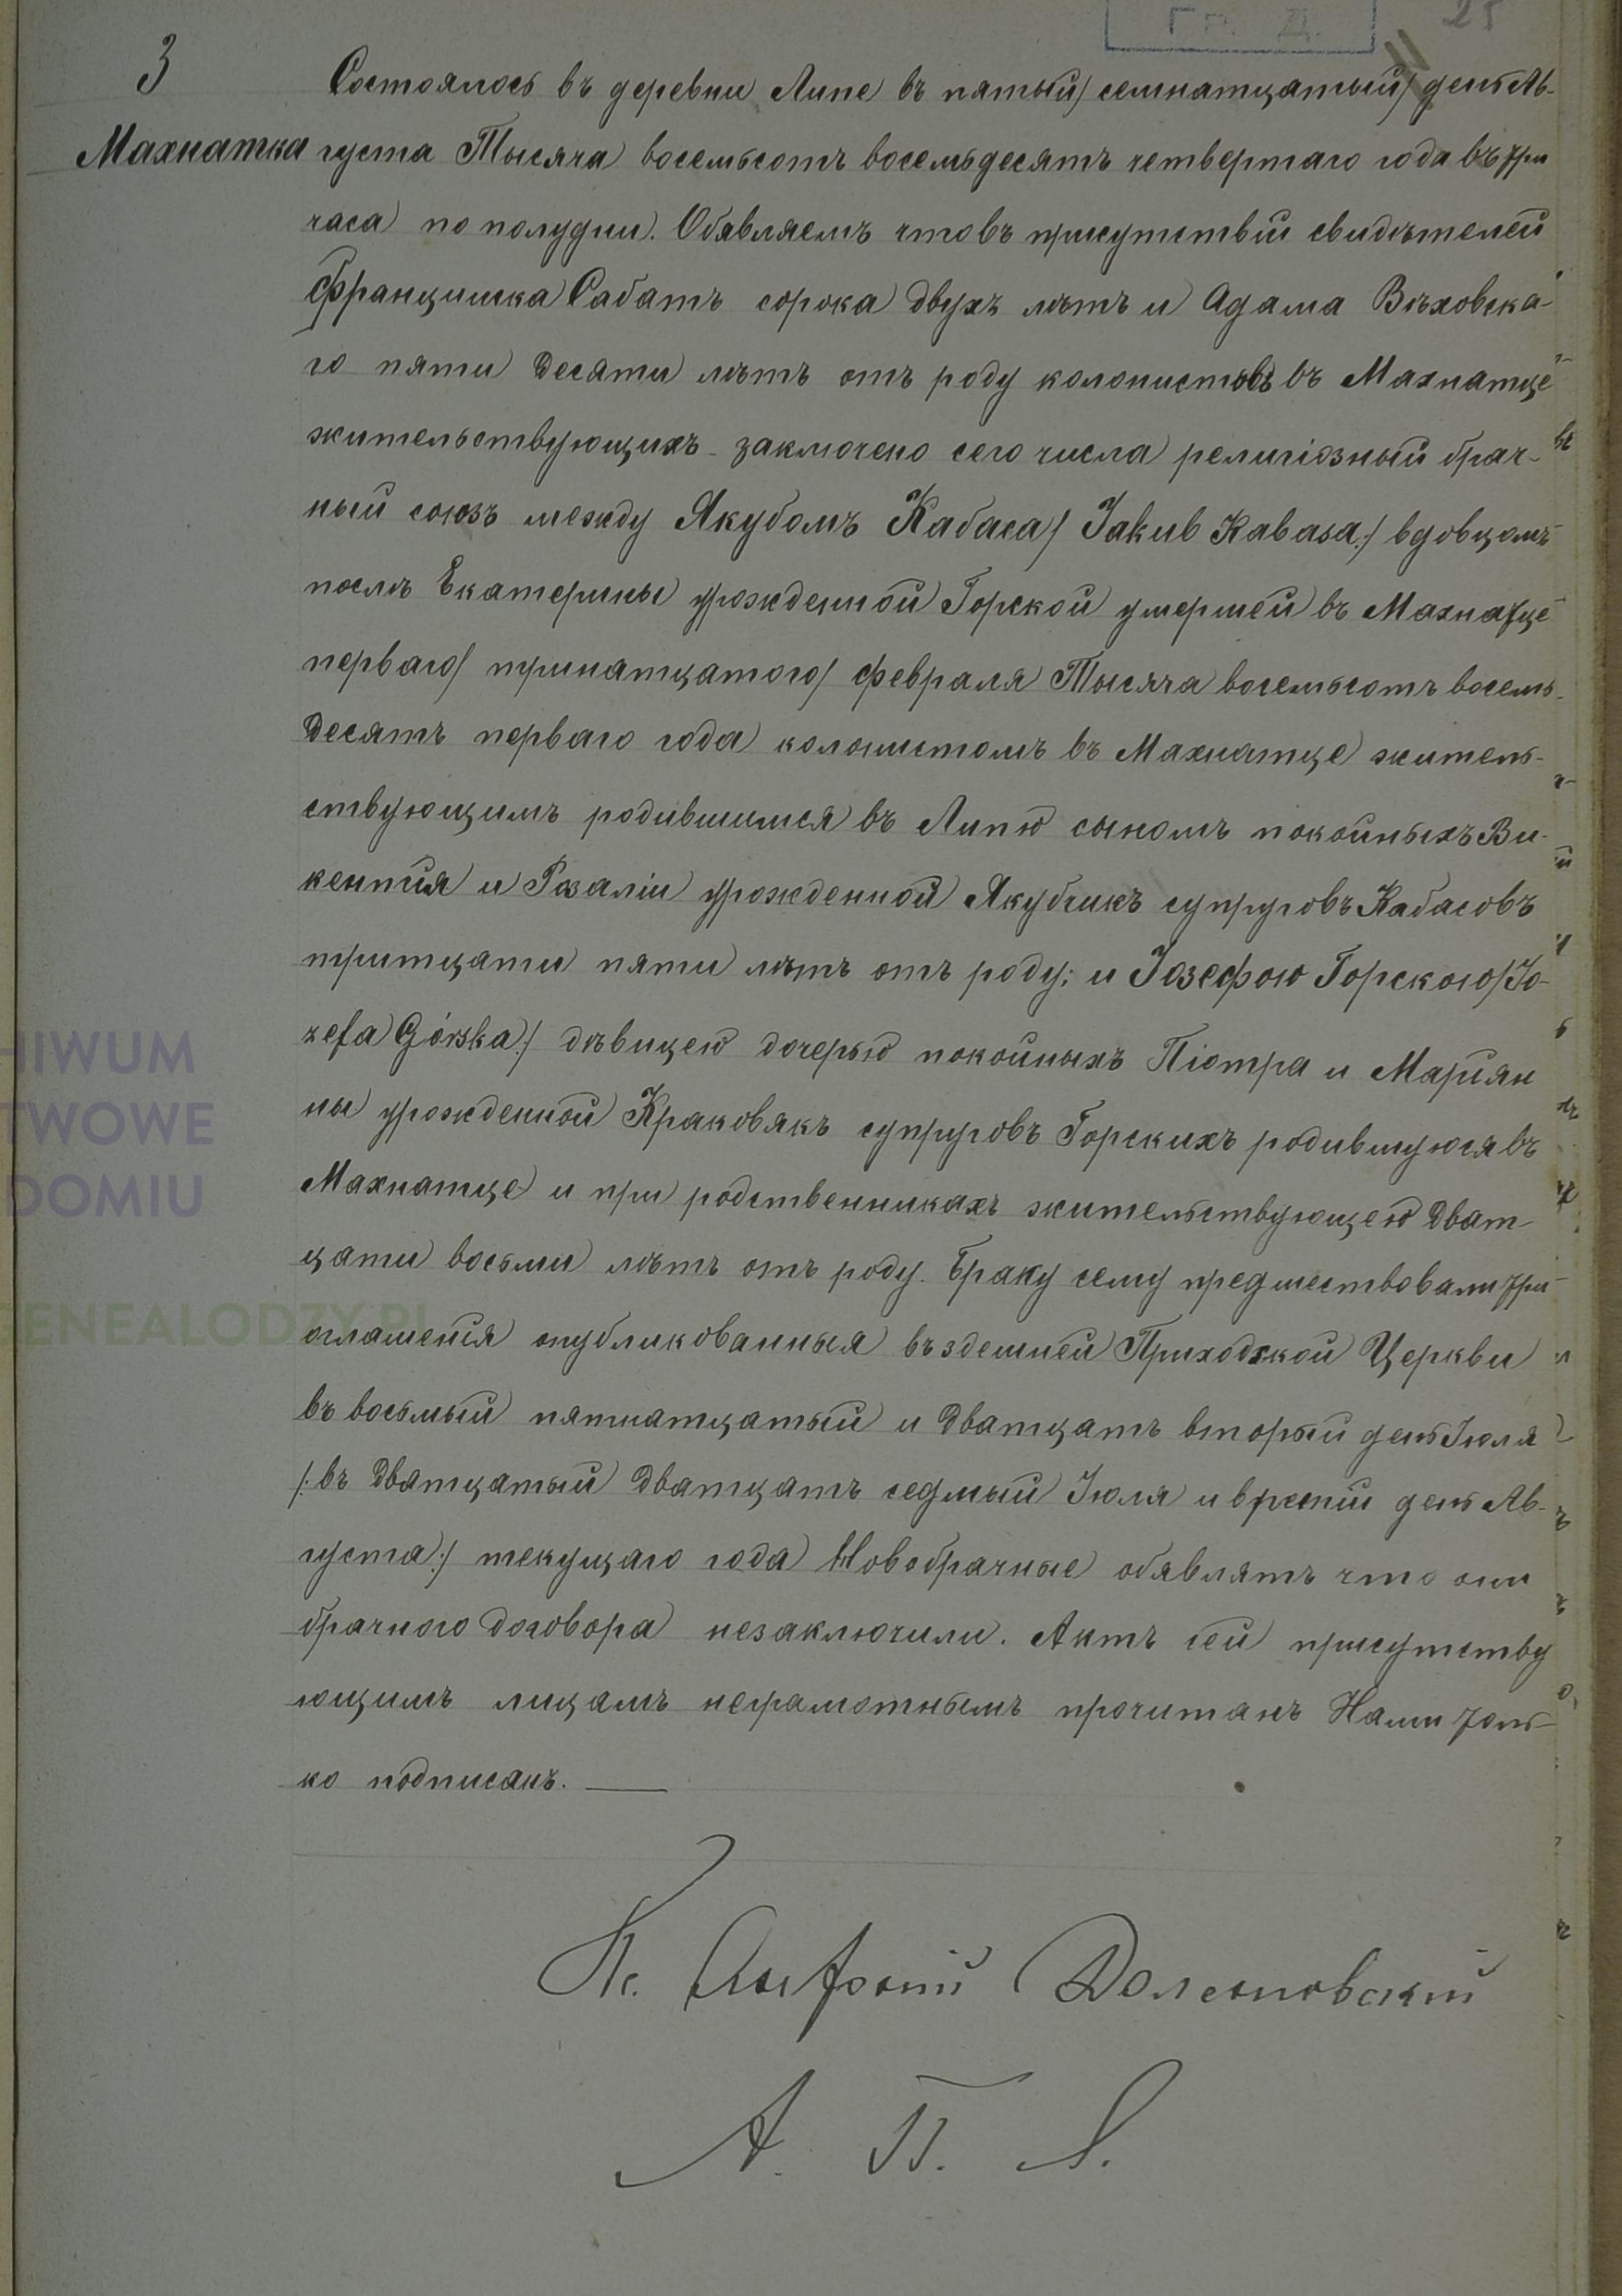 Гр. Д.
25
3
Состоялось въ деревни Липе въ пятый/ семнатцатый/ день Ав-
Махнатка
густа Тысяча восемьсотъ восемьдесятъ четвертаго года въ три
часа по полудни. Обявляемъ что въ присутствіи свидѣтелей
Францишка Сабатъ сорока двухъ лѣтъ и Адама Вѣховска-
го пяти десяти лѣтъ отъ роду колонистовъ въ Махнатце
жительствующихъ - заключено сего числа религіозный брач-
ный союзъ между Якубомъ Кабаса/ Jakub Kabasa:/ вдовцомъ
послѣ Екатерины урожденной Горской умершей въ Махнатце
перваго/ тринатцатого/ февраля Тысяча восемьсотъ восемь-
десятъ перваго года колонистомъ въ Махнатце житель-
ствующимъ родившимся въ Липю сыномъ покойныхъ Ви-
кентія и Розаліи урожденной Якубчикъ супруговъ Кабасовъ
тритцати пяти лѣтъ отъ роду; и Іозефою Горскою/ Jó-
zefa Górska:/ дѣвицею дочерью покойныхъ Піотра и Маріян
ны урожденной Краковякъ супруговъ Горскихъ родившуюся въ
Махнатце и при родственникахъ жительствующею Дват-
цати восьми лѣтъ отъ роду. Браку сему предшествовали три
оглашенія опубликованныя въ здешней Приходской Церкви
въ восьмый пятнатцатый и Дватцатъ вторый день Іюля
/: въ Дватцатый Дватцатъ седмый Іюля и въ третій день Ав-
густа:/ текущаго года Новобрачные обявлятъ что они
брачного договора незаключили. Актъ сей присутству
ющимъ лицамъ неграмотнымъ прочитанъ Нами толь-
ко подписанъ.
Кс. Антоній
А. П. Л.
HIWUM
TWOWE
DOMIU
GENEALODZY.PL